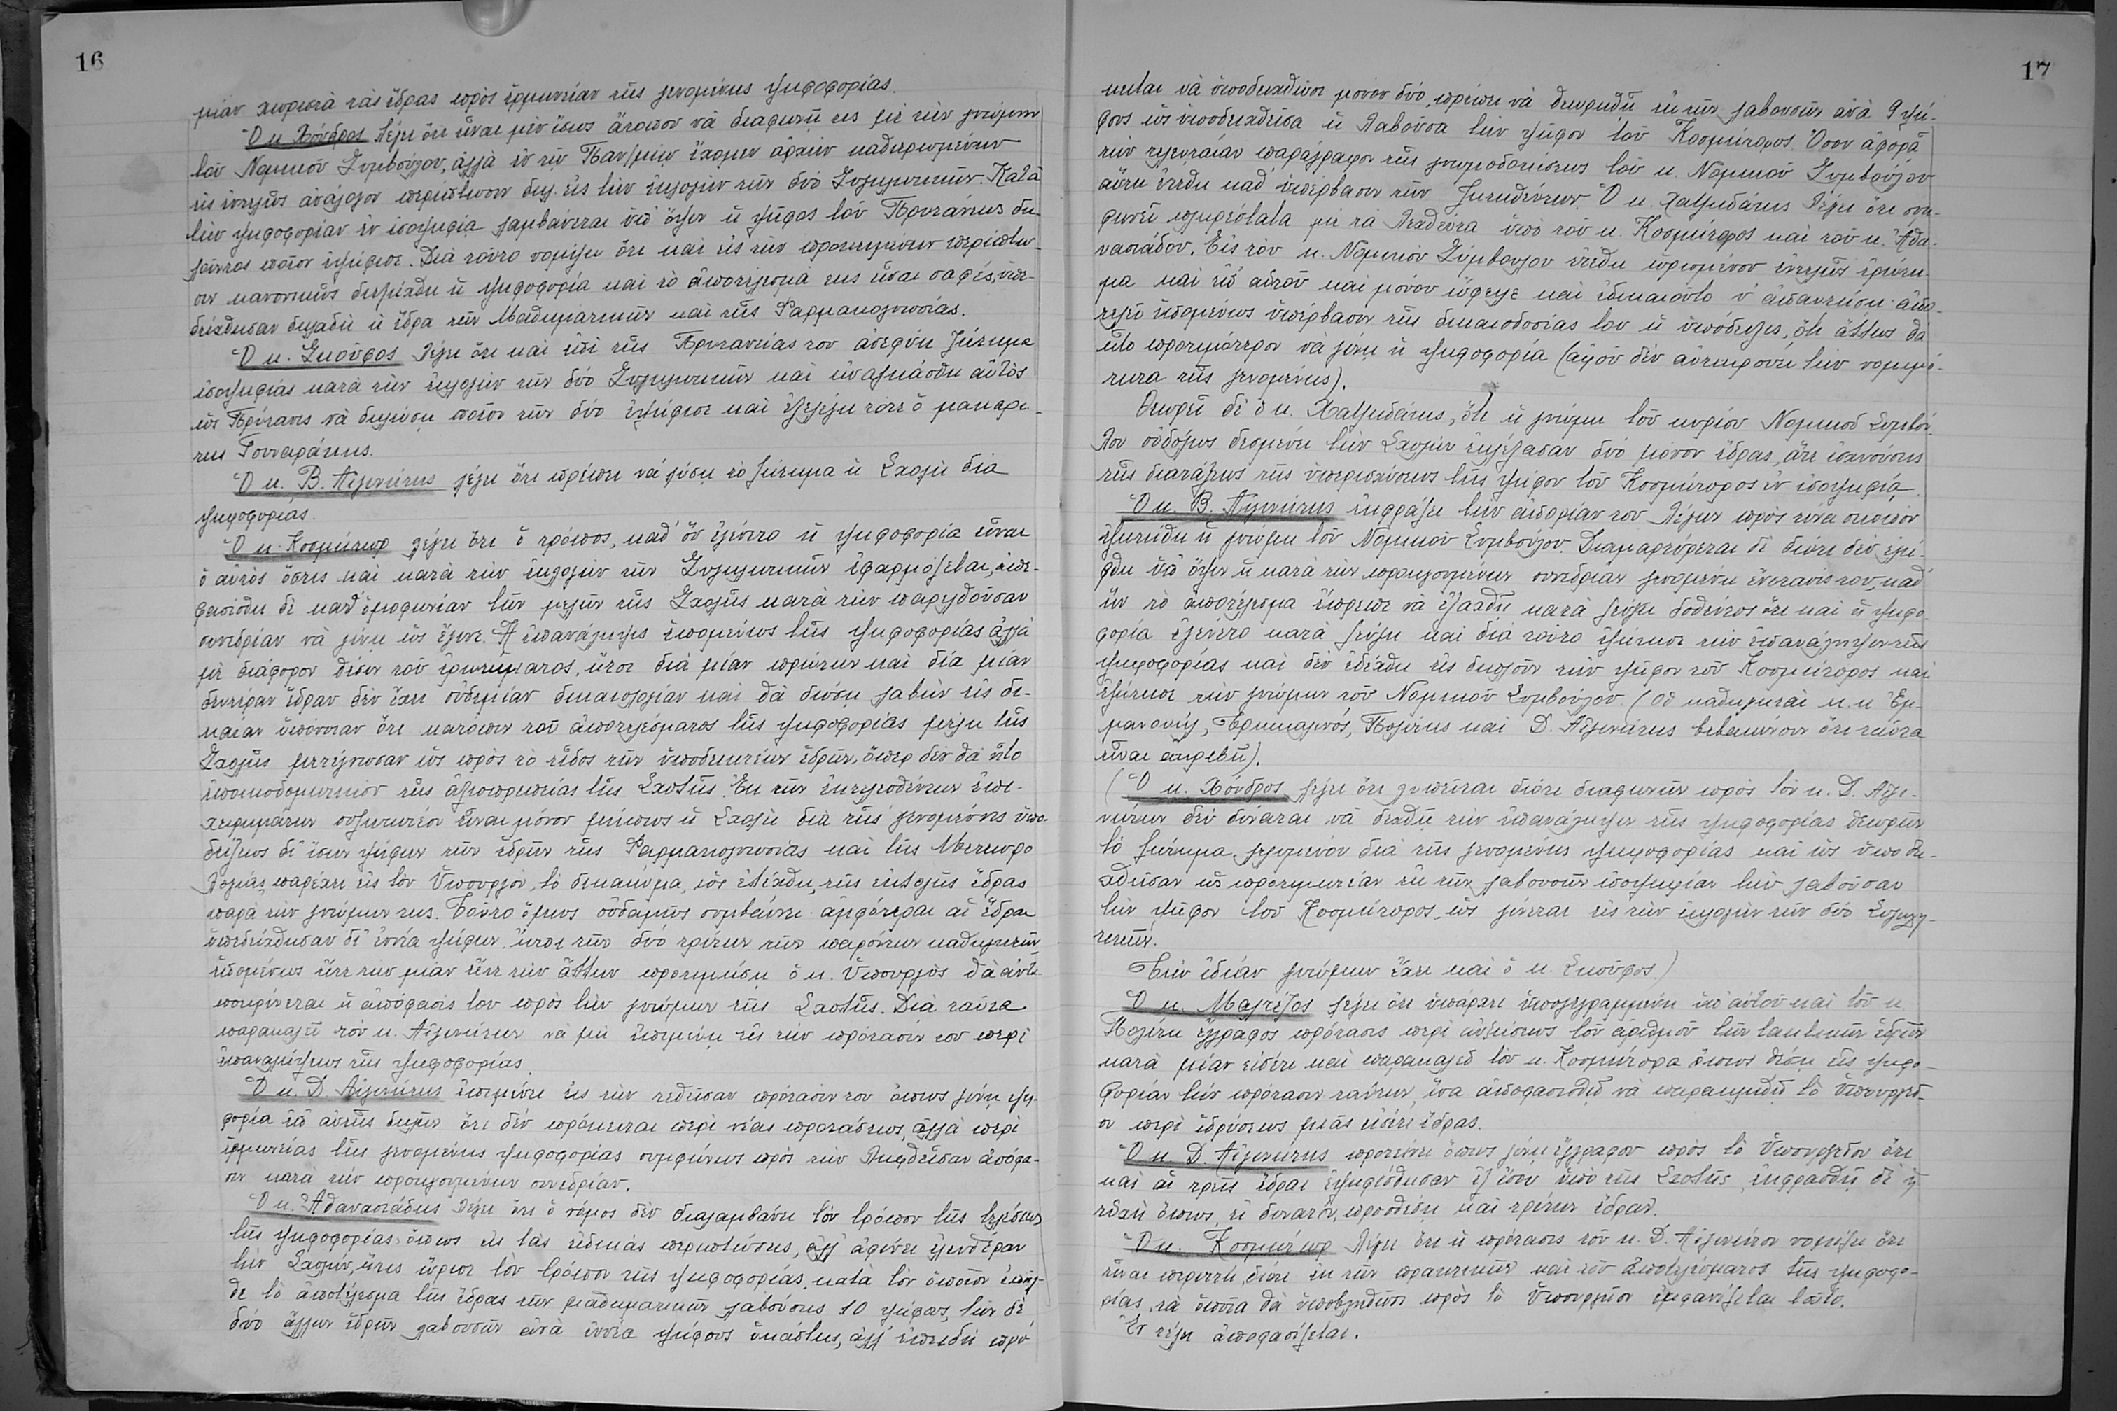 16
μίαν χωριστὰ τὰς ἕδρας πρὸς ἑρμηνείαν τῆς γενομένης ψηφοφορίας.
Ὁ κ. Χόνδρος λέγει ὅτι εἶναι μὲν ἴσως ἄτοπον νὰ διαφωνῇ τις μὲ τὴν γνώμην
τοῦ Νομικοῦ Συμβούλου, ἀλλὰ ἐν τῷ Παν/μίῳ ἔχομεν ἀρχὴν καθιερωμένην
εἰς ἐντελῶς ἀνάλογον περίπτωσιν δηλ. εἰς τὴν ἐκλογὴν τῶν δύο Συγκλητικῶν. Κατὰ
τὴν ψηφοφορίαν ἐν ἰσοψηφίᾳ λαμβάνεται ὑπ' ὄψιν ἡ ψῆφος τοῦ Πρυτάνεως δη-
λοῦντος ποῖον ἐψήφισε. Διὰ τοῦτο νομίζει ὅτι καὶ εἰς τὴν προκειμένην περίπτω-
σιν κανονικῶς διεξήχθη ἡ ψηφοφορία καὶ τὸ ἀποτέλεσμά της εἶναι σαφές, ὑπε-
δείχθησαν δηλαδὴ ἡ ἕδρα τῶν Μαθηματικῶν καὶ τῆς Φαρμακογνωσίας.
Ὁ κ. Σκοῦφος λέγει ὅτι καὶ ἐπὶ τῆς Πρυτανείας του ἀνεφύη ζήτημα
ἰσοψηφίας κατὰ τὴν ἐκλογὴν τῶν δύο Συγκλητικῶν καὶ ἠναγκάσθη αὐτὸς
ὡς Πρύτανις νὰ δηλώσῃ ποῖον τῶν δύο ἐψήφισε καὶ ἐξελέγη τότε ὁ μακαρί-
της Γουναράκης.
Ὁ κ. Β. Αἰγινήτης λέγει ὅτι πρέπει νὰ λύσῃ τὸ ζήτημα ἡ Σχολὴ διὰ
ψηφοφορίας.
Ὁ κ. Κοσμήτωρ λέγει ὅτι ὁ τρόπος, καθ' ὃν ἐγένετο ἡ ψηφοφορία εἶναι
ὁ αὐτὸς ὅστις καὶ κατὰ τὴν ἐκλογὴν τῶν Συγκλητικῶν ἐφαρμόζεται, ἀπε-
φασίσθη δὲ καθ' ὁμοφωνίαν τῶν μελῶν τῆς Σχολῆς κατὰ τὴν παρελθοῦσαν
συνεδρίαν νὰ γίνῃ ὡς ἔγινε. Ἡ ἐπανάληψις ἑπομένως τῆς ψηφοφορίας ἀλλὰ
μὲ διάφορον θέσιν τοῦ ἐρωτήματος, ἤτοι διὰ μίαν πρώτην καὶ διὰ μίαν
δευτέραν ἕδραν δὲν ἔχει οὐδεμίαν δικαιολογίαν καὶ θὰ δώσῃ λαβὴν εἰς δι-
καίαν ὑπόνοιαν ὅτι κατόπιν τοῦ ἀποτελέσματος τῆς ψηφοφορίας μέλη τῆς
Σχολῆς μετέγνωσαν ὡς πρὸς τὸ εἶδος τῶν ὑποδεικτέων ἑδρῶν, ὅπερ δὲν θὰ ἦτο
ἐποικοδομητικὸν τῆς ἀξιοπρεπείας τῆς Σχολῆς. Ἐκ τῶν ἐκτεθέντων ἐπι-
χειρημάτων συζητητέον εἶναι μόνον μήπως ἡ Σχολὴ διὰ τῆς γενομένης ὑπο-
δείξεως δι' ἴσων ψήφων τῶν ἑδρῶν τῆς Φαρμακογνωσίας καὶ τῆς Μετεωρο
λογίας παρέχει εἰς τὸν Ὑπουργόν, τὸ δικαίωμα, ὡς ἐλέχθη, τῆς ἐκλογῆς ἕδρας
παρὰ τὴν γνώμην της. Τοῦτο ὅμως οὐδαμῶς συμβαίνει ἀμφότεραι αἱ ἕδραι
ὑπεδείχθησαν δι' ἐννέα ψήφων ἤτοι τῶν δύο τρίτων τῶν παρόντων καθηγητῶν
ἑπομένως εἴτε τὴν μίαν εἴτε τὴν ἄλλην προτιμήσῃ ὁ κ. Ὑπουργὸς θὰ ἀντα-
ποκρίνεται ἡ ἀπόφασίς του πρὸς τὴν γνώμην τῆς Σχολῆς. Διὰ ταῦτα
παρακαλεῖ τὸν κ. Αἰγινήτην νὰ μὴ ἐπιμείνῃ εἰς τὴν πρότασίν του περὶ
ἐπαναλήψεως τῆς ψηφοφορίας.
Ὁ κ. Δ. Αἰγινήτης ἐπιμένει εἰς τὴν τεθεῖσαν πρότασίν του ὅπως γίνῃ ψη-
φορία ἐπ' αὐτῆς δηλῶν ὅτι δὲν πρόκειται περὶ νέας προτάσεως, ἀλλὰ περὶ
ἑρμηνείας τῆς γενομένης ψηφοφορίας συμφώνως πρὸς τὴν ληφθεῖσαν ἀπόφα-
σιν κατὰ τὴν προηγουμένην συνεδρίαν.
Ὁ κ. Ἀθανασιάδης λέγει ὅτι ὁ νόμος δὲν διαλαμβάνει τὸν τρόπον τῆς
τῆς ψηφοφορίας ὅπως εἰς τὰς εἰδικὰς περιπτώσεις, ἀλλ' ἀφίνει ἐλευθέραν
τὴν Σχολήν, ἥτις ὥρισε τὸν τρόπον τῆς ψηφοφορίας, κατὰ τὸν ὁποῖον ἐξήχ-
θη τὸ ἀποτέλεσμα τῆς ἕδρας τῶν μαθηματικῶν λαβούσης 10 ψήφους, τῶν δὲ
δύο ἄλλων ἑδρῶν λαβουσῶν ἀνὰ ἐννέα ψήφους ἑκάστης, ἀλλ' ἐπειδὴ πρό-
17
κειται νὰ ὑποδειχθῶσι μόνον δύο, πρέπει νὰ θεωρηθῇ ἐκ τῶν λαβουσῶν ἀνὰ 9 ψή-
φους ὡς ὑποδειχθεῖσα ἡ λαβοῦσα τὴν ψῆφον τοῦ Κοσμήτορος. Ὅσον ἀφορᾷ
τὴν τελευταίαν παράγραφον τῆς γνωμοδοτήσεως τοῦ κ. Νομικοῦ Συμβούλου
αὕτη ἐτέθη καθ' ὑπέρβασιν τῶν ζητηθέντων. Ὁ κ. Χατζιδάκις λέγει ὅτι συμ-
φωνεῖ πληρέστατα μὲ τὰ λεχθέντα ὑπὸ τοῦ κ. Κοσμήτορος καὶ τοῦ κ. Ἀθα-
νασιάδου. Εἰς τὸν κ. Νομικὸν Σύμβουλον ἐτέθη ὡρισμένον ἐντελῶς ἐρώτη-
μα καὶ ἐπ' αὐτοῦ καὶ μόνον ὤφειλε καὶ ἐδικαιοῦτο ν' ἀπαντήσῃ· ἀπο-
τελεῖ ἑπομένως ὑπέρβασιν τῆς δικαιοδοσίας του ἡ ὑπόδειξις, ὅτι ἄλλως θὰ
ἦτο προτιμότερον νὰ γίνῃ ἡ ψηφοφορία (ἀφοῦ δὲν ἀντικρούει τὴν νομιμό-
τητα τῆς γενομένης).
Θεωρεῖ δὲ ὁ κ. Χατζιδάκις, ὅτι ἡ γνώμη τοῦ κυρίου Νομικοῦ Συμβού-
λου οὐδόλως δεσμεύει τὴν Σχολὴν ἐκλέξασαν δύο μόνον ἕδρας, ἅτε ἰσχυούσης
τῆς διατάξεως τῆς ὑπερισχύσεως τῆς ψήφου τοῦ Κοσμήτορος ἐν ἰσοψηφίᾳ.
Ὁ κ. Β. Αἰγινήτης ἐκφράζει τὴν ἀπορίαν του λέγων πρὸς τίνα σκοπὸν
ἐζητήθη ἡ γνώμη τοῦ Νομικοῦ Συμβούλου. Διαμαρτύρεται δὲ διότι δὲν ἐλή-
φθη ὑπ' ὄψιν ἡ κατὰ τὴν προηγουμένην συνεδρίαν γενομένη ἔνστασίς του, καθ'
ἣν τὸ ἀποτέλεσμα ἔπρεπε νὰ ἐξαχθῇ κατὰ ζεύγη δοθέντος ὅτι καὶ ἡ ψηφο-
φορία ἐγένετο κατὰ ζεύγη καὶ διὰ τοῦτο ἐζήτησε τὴν ἐπανάληψιν τῆς
ψηφοφορίας καὶ δὲν ἐδέχθη εἰς διπλοῦν τὴν ψῆφον τοῦ Κοσμήτορος καὶ
ἐζήτησε τὴν γνώμην τοῦ Νομικοῦ Συμβούλου. (Οἱ καθηγηταὶ κ. κ. Ἐμ-
μανουήλ, Γερμανός, Πολίτης καὶ Δ. Αἰγινήτης βεβαιώνουν ὅτι ταῦτα
εἶναι ἀκριβῆ).
(Ὁ κ. Χόνδρος λέγει ὅτι λυπεῖται διότι διαφωνῶν πρὸς τὸν κ. Δ. Αἰγι-
νήτην δὲν δύναται νὰ δεχθῇ τὴν ἐπανάληψιν τῆς ψηφοφορίας θεωρῶν
τὸ ζήτημα λελυμένον διὰ τῆς γενομένης ψηφοφορίας καὶ ὡς ὑποδει-
χθεῖσαν ὡς προτιμητέαν ἐκ τῶν λαβουσῶν ἰσοψηφίαν τὴν λαβοῦσαν
τὴν ψῆφον τοῦ Κοσμήτορος, ὡς γίνεται εἰς τὴν ἐκλογὴν τῶν δύο Συγκλη-
τικῶν.
Τὴν ἰδίαν γνώμην ἔχει καὶ ὁ κ. Σκοῦφος.)
Ὁ κ. Μαλτέζος λέγει ὅτι ὑπάρχει ὑπογεγραμμένη ὑπ' αὐτοῦ καὶ τοῦ κ.
Πολίτη ἔγγραφος πρότασις περὶ αὐξήσεως τοῦ ἀριθμοῦ τῶν τακτικῶν ἑδρῶν
κατὰ μίαν εἰσέτι καὶ παρακαλεῖ τὸν κ. Κοσμήτορα ὅπως θέσῃ εἰς ψηφο-
φορίαν τὴν πρότασιν ταύτην, ἵνα ἀποφασισθῇ νὰ παρακληθῇ τὸ Ὑπουργεῖ-
ον περὶ ἱδρύσεως μιᾶς εἰσέτι ἕδρας.
Ὁ κ. Δ. Αἰγινήτης προτείνει ὅπως γίνῃ ἔγγραφον πρὸς τὸ Ὑπουργεῖον ὅτι
καὶ αἱ τρεῖς ἕδραι ἐψηφίσθησαν ἐξ ἴσου ὑπὸ τῆς Σχολῆς, ἐκφρασθῇ δὲ ἡ
εὐχὴ ὅπως, εἰ δυνατόν, προσθέσῃ καὶ τρίτην ἕδραν.
Ὁ κ. Κοσμήτωρ λέγει ὅτι ἡ πρότασις τοῦ κ. Δ. Αἰγινήτου νομίζει ὅτι
εἶναι περιττή, διότι ἐκ τῶν πρακτικῶν καὶ τοῦ ἀποτελέσματος τῆς ψηφοφο-
ρίας, τὰ ὁποῖα θὰ ὑποβληθῶσι πρὸς τὸ Ὑπουργεῖον ἐμφανίζεται τοῦτο.
Ἐν τέλει ἀποφασίζεται.